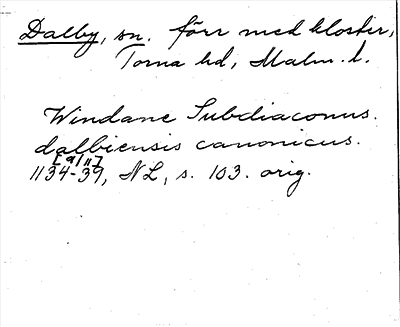 Dalby, sn. förr med kloster,
Torna hd, Malm. l.
Windane Subdiaconus.
dalbiensis canonicus.
[9/11]
1134-39, NL, s. 103. orig.